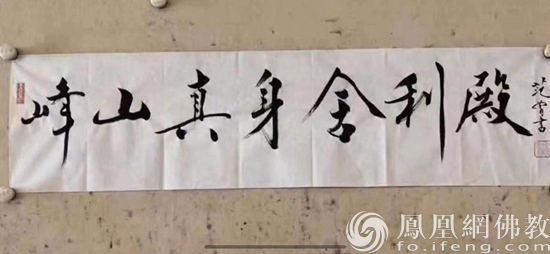 峰山真身舍利殿
范书
鳳凰網佛教
fo.ifeng.com